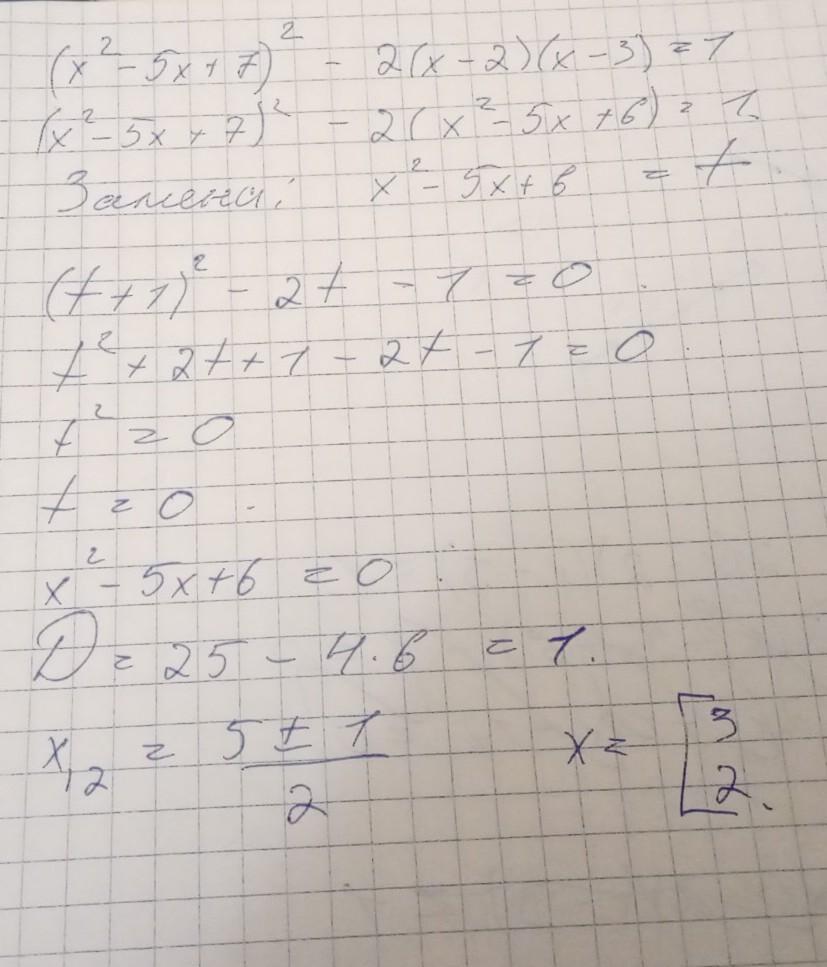 (x² - 5x + 7)² - 2(x - 2)(x - 3) = 1
(x² - 5x + 7)² - 2(x² - 5x + 6) = 1.
Замена: x² - 5x + 6 = t
(t + 1)² - 2t - 1 = 0.
t² + 2t + 1 - 2t - 1 = 0.
t² = 0
t = 0.
x² - 5x + 6 = 0.
D = 25 - 4·6 = 1.
x₁,₂ = (5 ± 1)/2 x = [3
2.